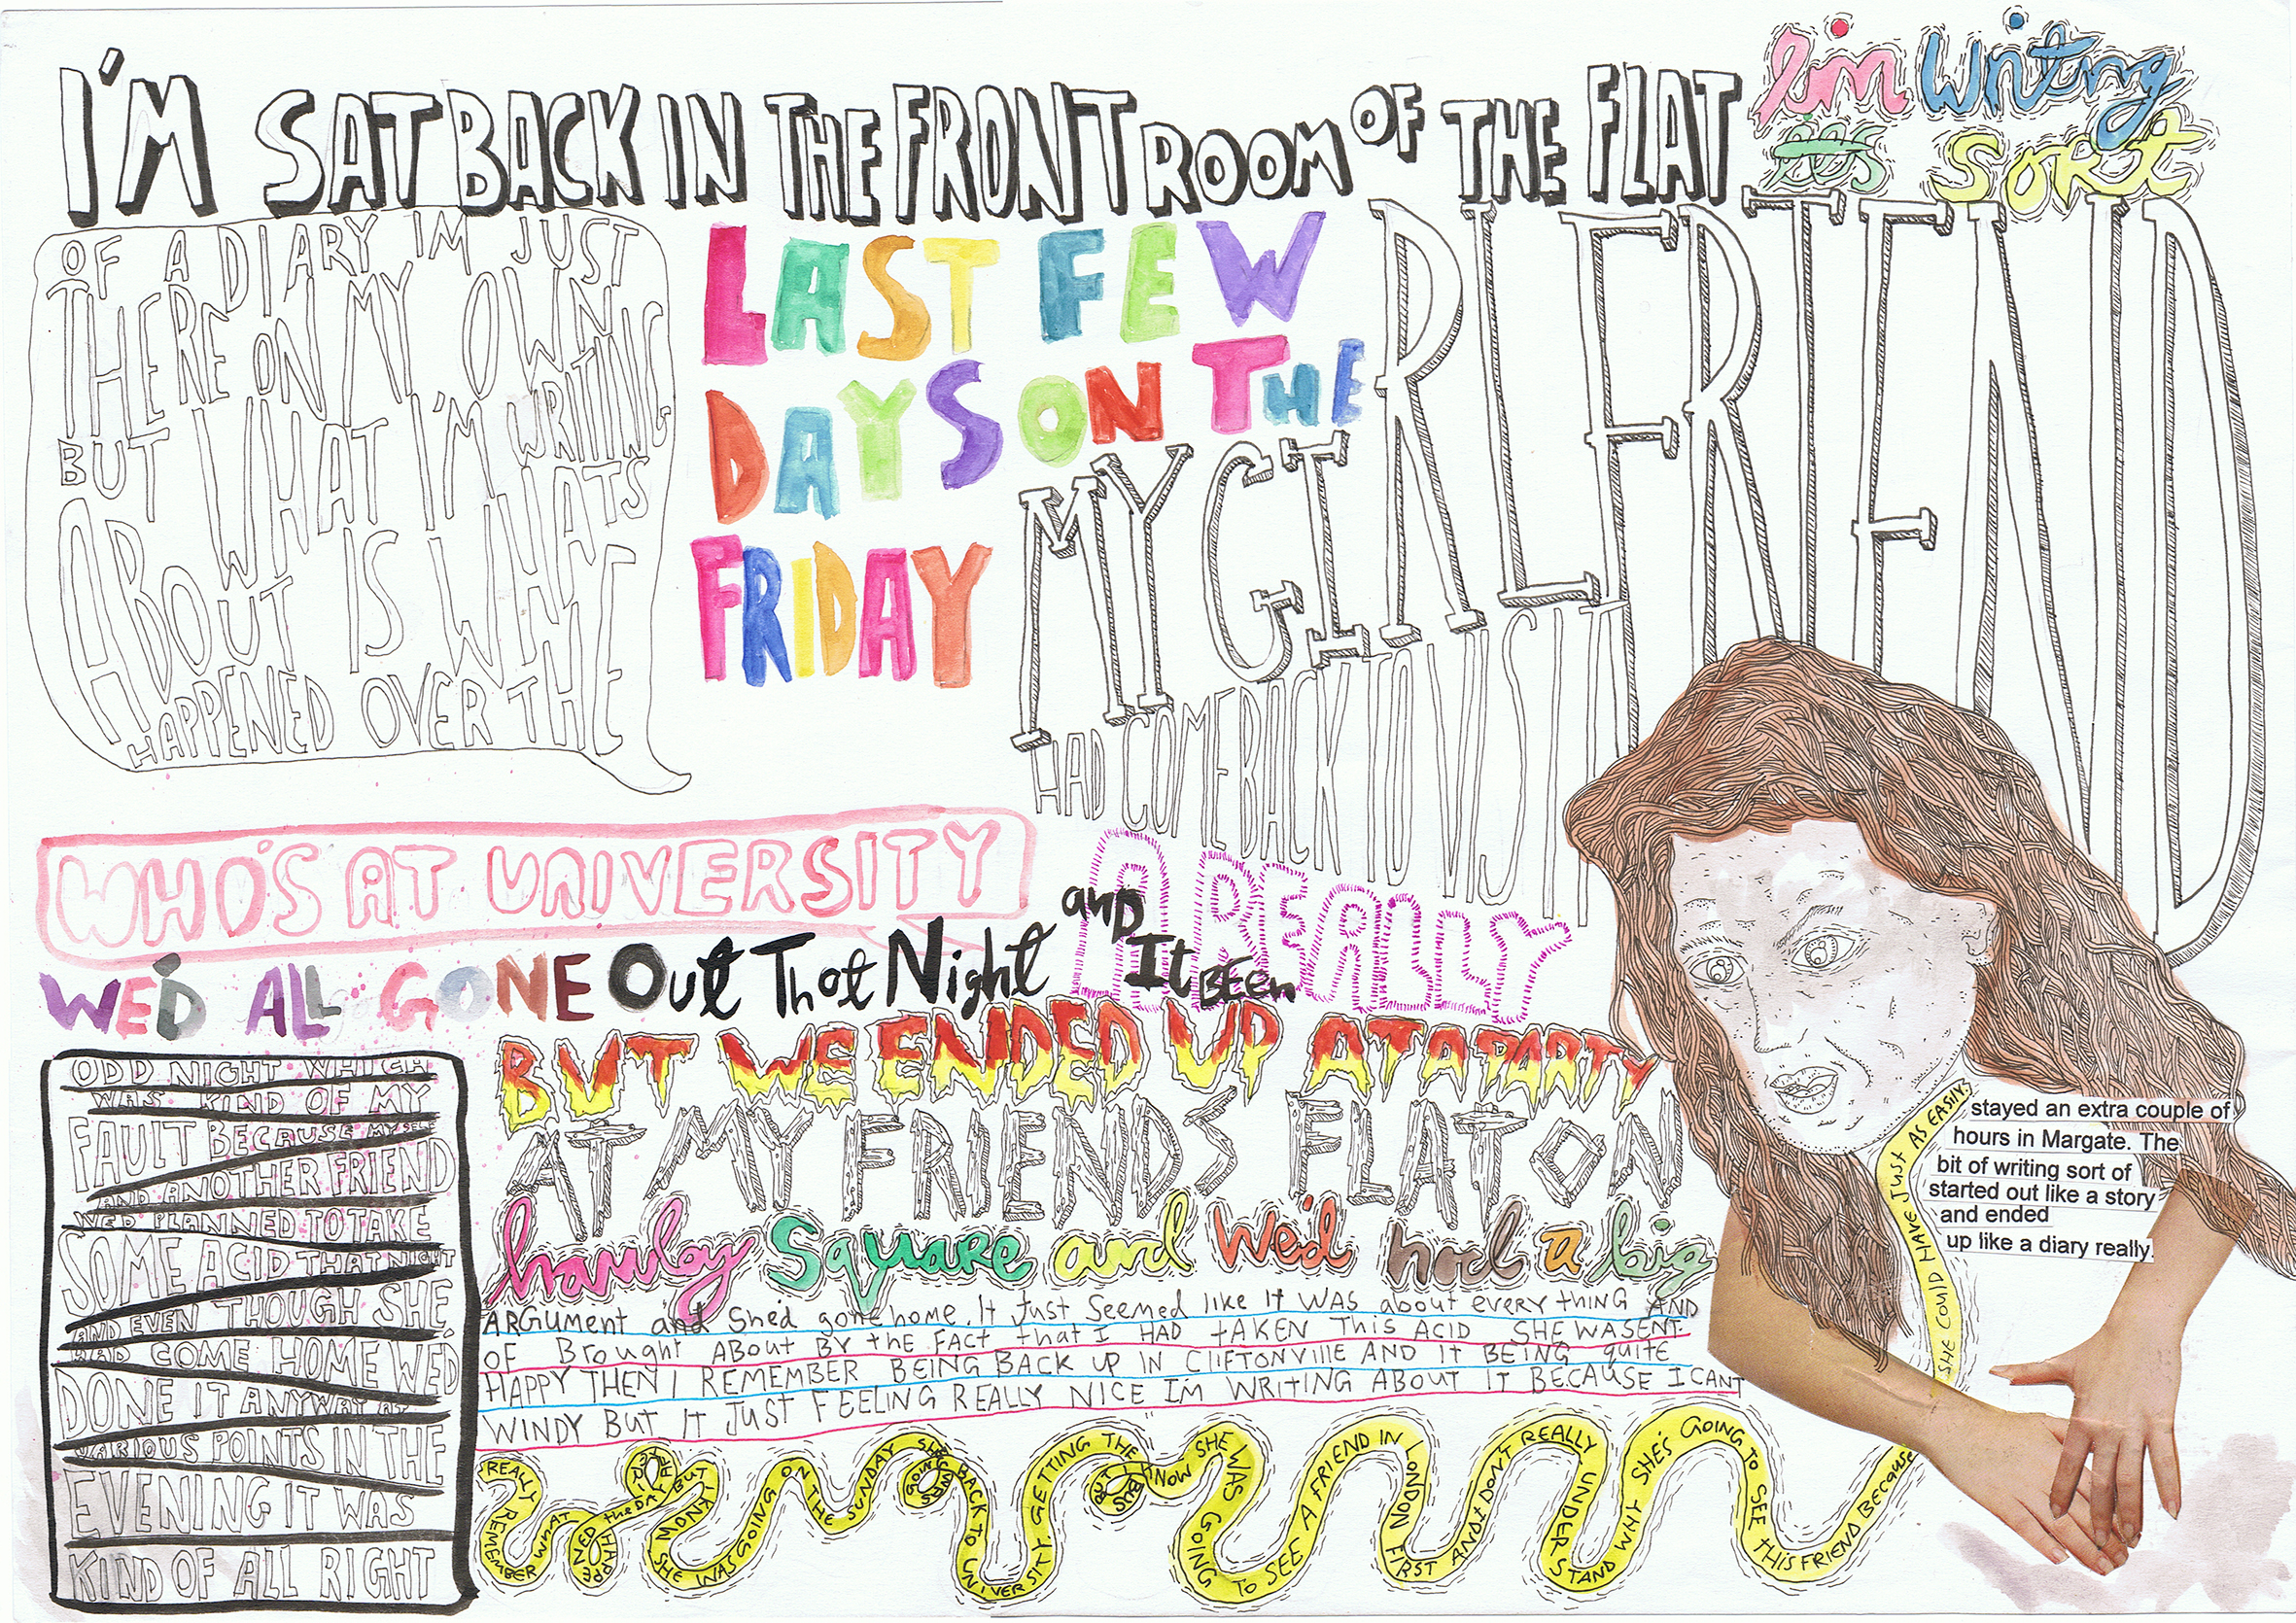 I'M SAT BACK IN THE FRONT ROOM OF THE FLAT
I'm writng
as sort
OF A DIARY IM JUST
THERE ON MY OWN
BUT WHAT I'M WRITING
ABOUT IS WHATS
HAPPENED OVER THE
LAST FEW
DAYS ON THE
FRIDAY
MY GIRLFRIEND
HAD COME BACK TO VISIT
WHO'S AT UNIVERSITY
WE'D ALL GONE Out That Night
anD It BEEn
A REALLY
ODD NIGHT WHICH
WAS KIND OF MY
FAULT BECAUSE MYSELF
AND ANOTHER FRIEND
WED PLANNED TO TAKE
SOME ACID THAT NIGHT
AND EVEN THOUGH SHE
HAD COME HOME WE'D
DONE IT ANYWAY AT
VARIOUS POINTS IN THE
EVENING IT WAS
KIND OF ALL RIGHT
BUT WE ENDED UP AT A PARTY
AT MY FRIENDS FLAT ON
hawley Square and We'd had a big
ARGument and She'd gone home. It Just Seemed like It WAS about every thing AND
OF Brought ABOut BY the FACt that I HAD tAKEN This ACID SHE WASENt
HAPPY THEN I REMEMBER BEING BACK UP IN CLIFTONVIllE AND It BEING quite
WINDY BUt It JUST FEELING REALLY NICE I'M WRITING ABOUT It BECAUSE I CANT
REALLY REMEMBER WHAT HAPPENED the DAY AFTER BUT I KNOW SHE WAS GOING ON THE MONDAY
ON THE SUNDAY SHE WAS GOING BACK TO UNIVERSITY GETTING THE BUS BUT I KNOW SHE WAS GOING TO SEE A FRIEND IN LONDON FIRST AND I DON'T REALLY UNDERSTAND WHY SHE'S GOING TO SEE THIS FRIEND BECAUSE
SHE COULD HAVE JUST AS EASILY
stayed an extra couple of
hours in Margate. The
bit of writing sort of
started out like a story
and ended
up like a diary really.